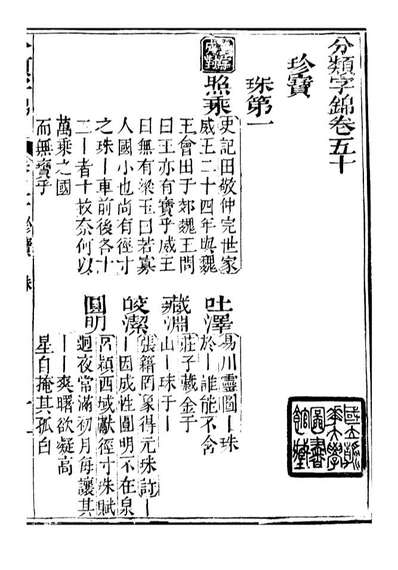 分類字錦卷五十
珍寶
珠第一
照乘
史記田敬仲完世家
威王二十四年與魏
王會田于郊魏王問
曰王亦有寶乎威王
曰無有梁王曰若寡
人國小也尚有徑寸
之珠丨車前後各十
二丨者十枚奈何以
萬乘之國
而無寶乎
吐澤
易川靈圖丨珠
於丨誰能不含
藏淵
莊子藏金于
山丨珠于丨
皎潔
張籍罔象得元珠詩丨
丨因成性圓明不在泉
圓明
呂穎西域獻徑寸珠賦
迥夜常滿初月每讓其
丨丨爽曙欲疑高
星自掩其孤白
珍寶 珠
國立清
華大學
圖書
館藏